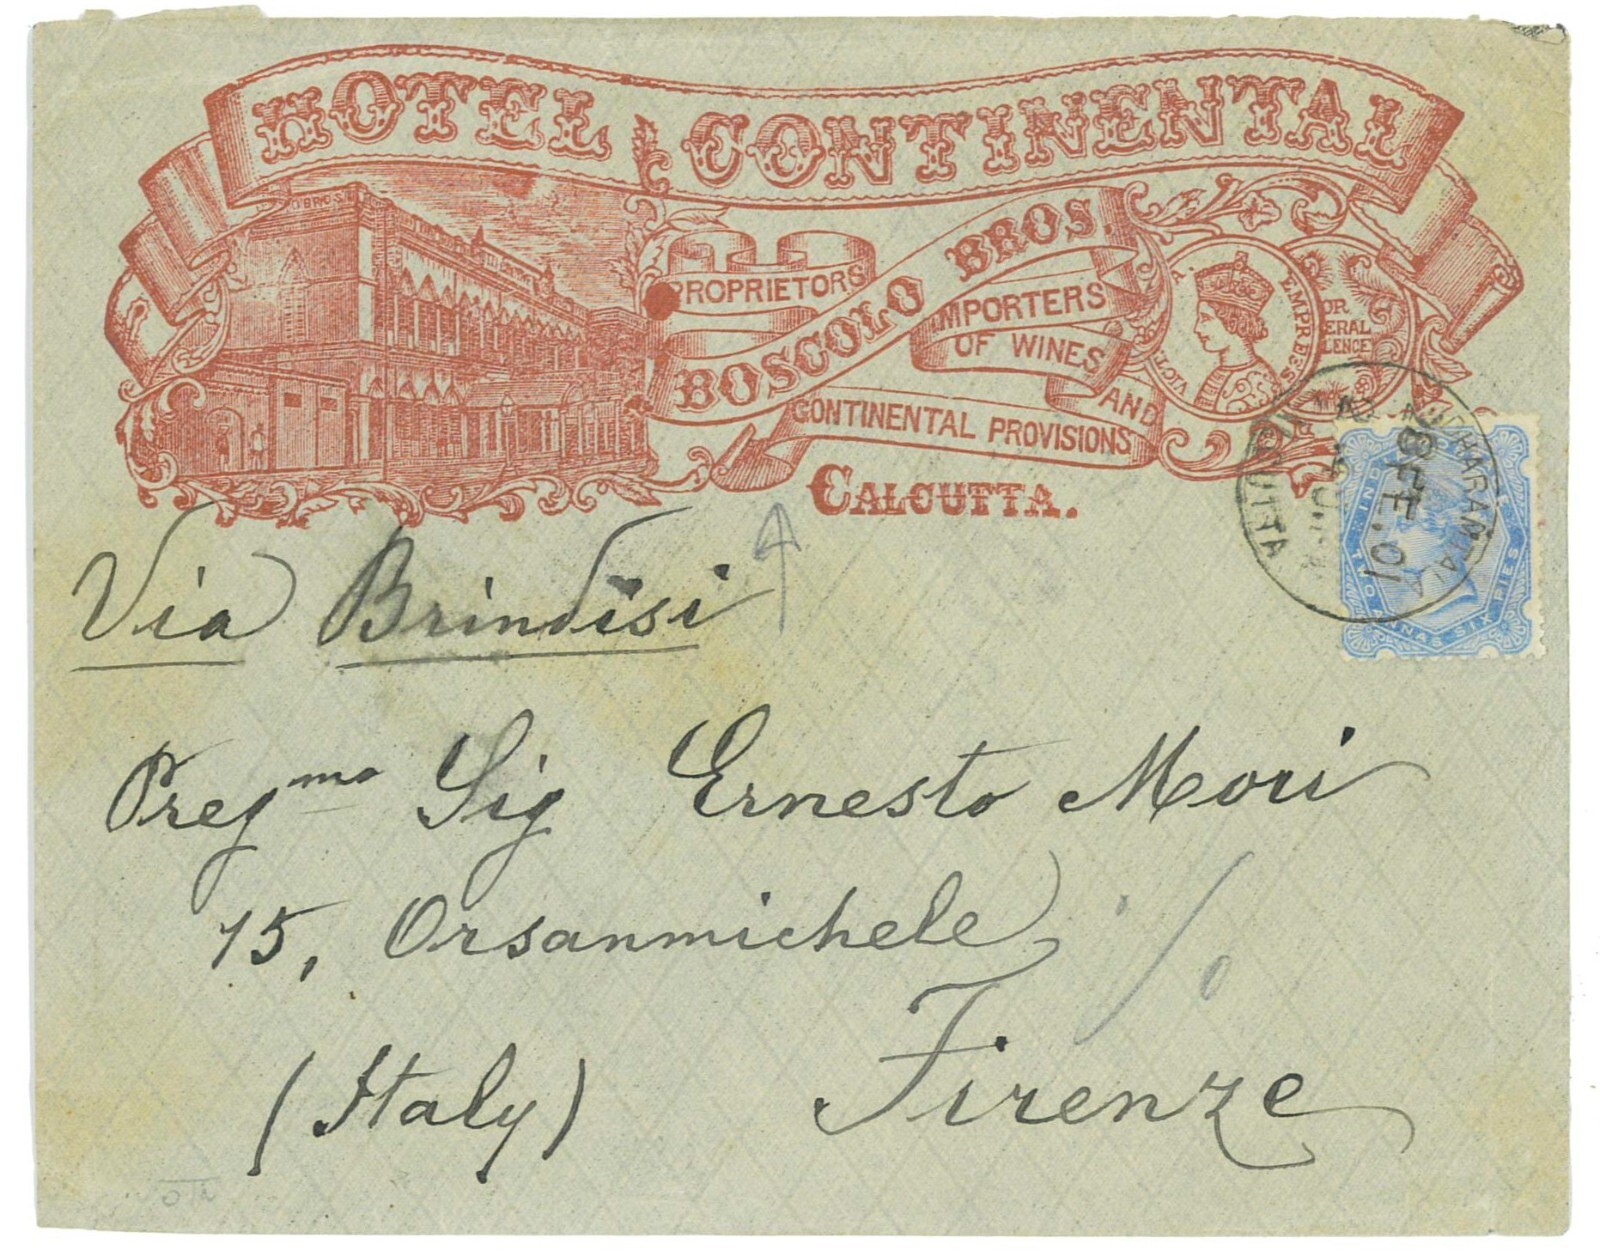 HOTEL CONTINENTAL
O BROS
PROPRIETORS
BOSCOLO BROS.
IMPORTERS
OF WINES
AND
CONTINENTAL PROVISIONS
CALCUTTA.
VICT
A
EMPRESS
OR
ERAL
LENCE
8 FE. 01
INDIA
ANNAS SIX PIES
Via Brindisi
Preg mo Sig Ernesto Mori
15, Orsanmichele
Firenze
(Italy)